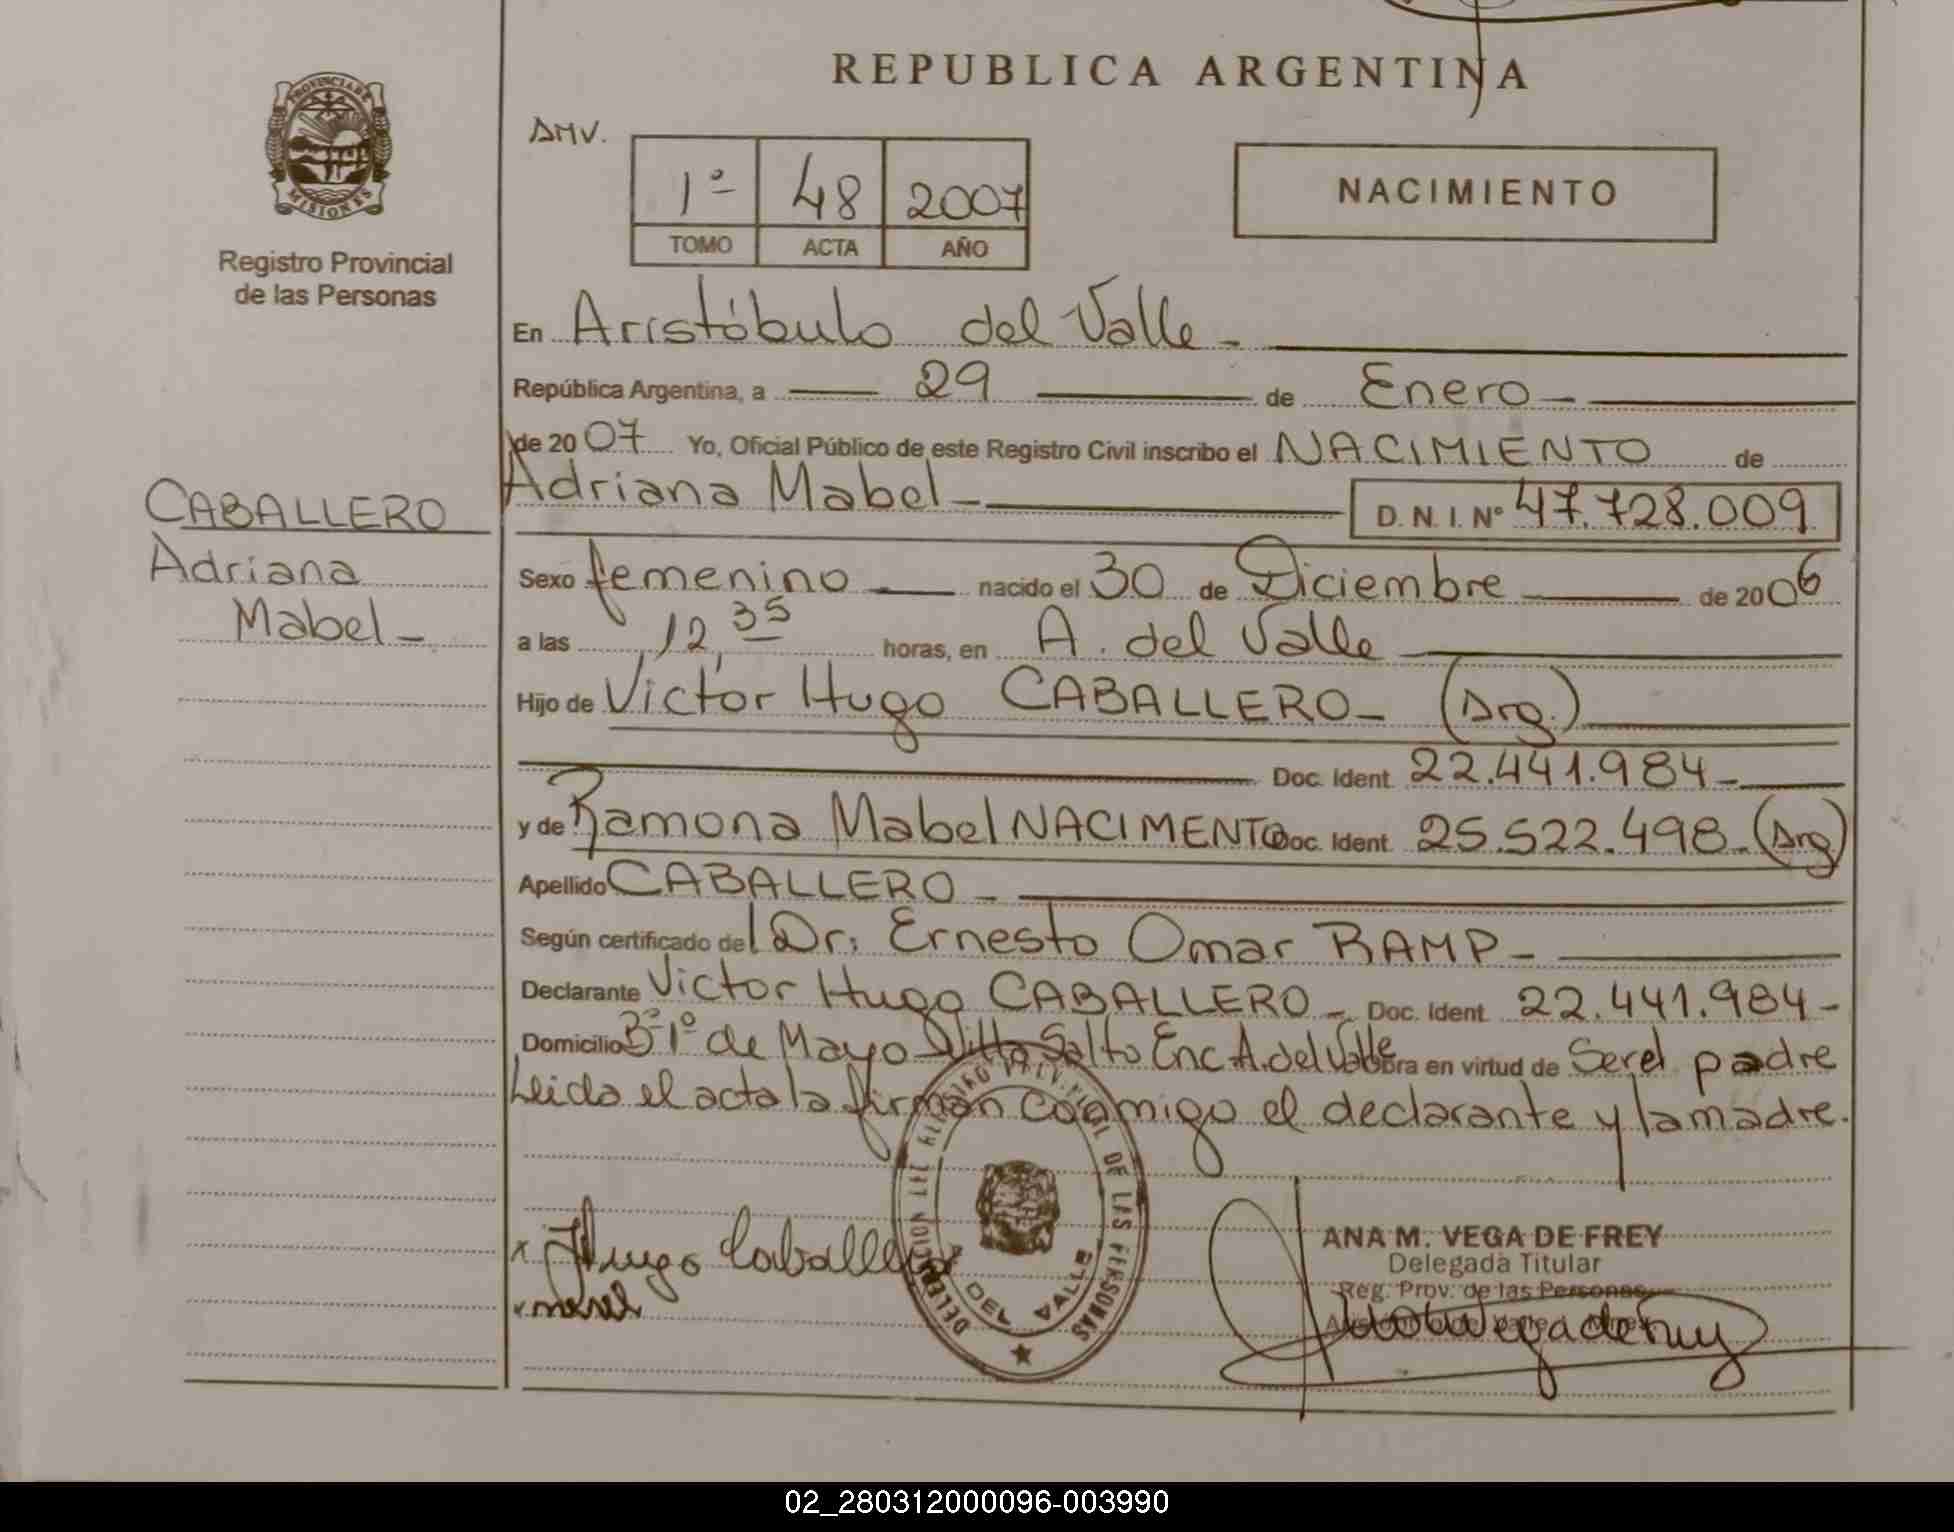 REPUBLICA ARGENTINA
PROVINCIA DE MISIONES
Registro Provincial
de las Personas
AMV.
1º 48 2007
TOMO ACTA AÑO
NACIMIENTO
En Aristóbulo del Valle -
República Argentina, a 29 de Enero -
de 2007 Yo, Oficial Público de este Registro Civil inscribo el NACIMIENTO de
Adriana Mabel - D. N. I. Nº 47.728.009
CABALLERO
Adriana
Mabel -
Sexo femenino nacido el 30 de Diciembre de 2006
a las 12,35 horas, en A. del Valle
Hijo de Victor Hugo CABALLERO - (Arg.)
Doc. Ident. 22.441.984 -
y de Ramona Mabel NACIMENTO Doc. Ident. 25.522.498 - (Arg)
Apellido CABALLERO -
Según certificado del Dr. Ernesto Omar RAMP -
Declarante Victor Hugo CABALLERO - Doc. Ident. 22.441.984 -
Domicilio Bº 1º de Mayo Salto Enc A. del Valle obra en virtud de Ser el padre
Leida el acta la firman conmigo el declarante y la madre.
DELEGACION DEL REGISTRO PROVINCIAL DE LAS PERSONAS
A. DEL VALLE
x Hugo Caballero
ANA M. VEGA DE FREY
Delegada Titular
Reg. Prov. de las Personas
02_280312000096-003990